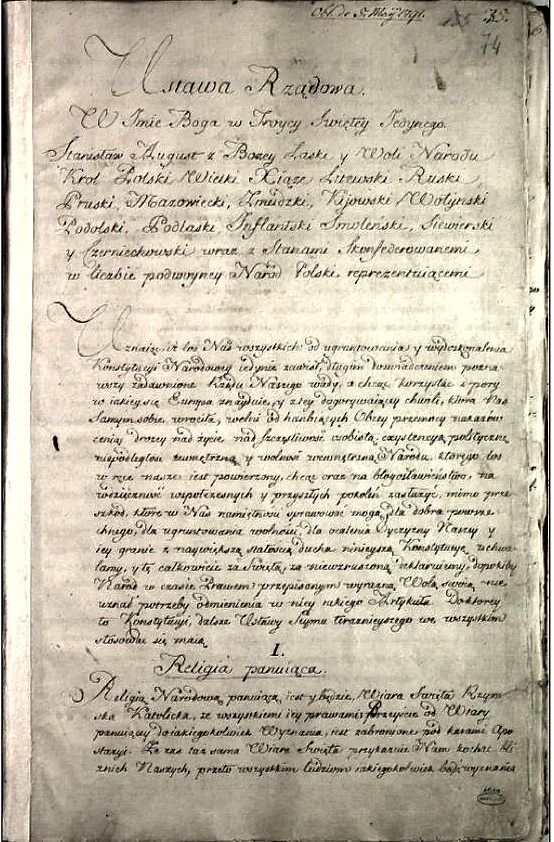 Obl. de 5. Maÿ 1791.
35.
74
Ustawa Rządowa.
W Imie Boga w Troycy Swiętey Jedynego.
Stanisław August z Bozey Łaski y Woli Narodu
Krol Polski Wielki Xiąze Litewski Ruski
Pruski, Mazowiecki, Zmudzki, Kijowski Wołynski
Podolski, Podlaski Inflantski Smolenski, Siewierski
y Czerniechowski wraz z Stanami Skonfederowanemi
w liczbie podwoyney Naród Polski reprezentuiącemi
Uznaiąc, iż los Nas wszystkich od ugruntowania y wydoskonalenia
Konstytucyi Narodowey iedynie zawisł, długim doswiadczeniem pozna-
wszy zadawnione Rządu Naszego wady, a chcąc korzystac z pory
w iakiey się Europa znayduie, y z tey dogorywaiącey chwili, ktora Nas
samym sobie wrociła, wolni od hanbiących Obcey przemocy nakazów
ceniąc drozey nad zycie, nad szczęsliwosc osobistą exystencyą polityczną
niepodległosc zewnętrzną y wolnosc wewnętrzną Narodu, ktorego los
w ręce nasze iest powierzony, chcąc oraz na błogosławienstwo, na
wdzięcznosc wspołczesnych y przyszłych pokolen zasłużyc, mimo prze-
szkód, ktore w Nas namiętnosci sprawowac mogą, dla dobra powsze-
chnego, dla ugruntowania wolnosci, dla ocalenia Oyczyzny Naszey y
iey granic z naywiększą stałoscią ducha ninieyszą Konstytucyę uchwa-
lamy, y tę całkowicie za Swiętą, za niewzruszoną deklaruiemy, dopokiby
Naród w czasie Prawem przepisanym wyrazną Wolą swoią nie
uznał potrzeby odmienienia w niey iakiego Artykułu. Do ktorey
to Konstytucyi, dalsze Ustawy Seymu teraznieyszego we wszystkim
stosowac się maią
I.
Religia panuiąca.
Religią Narodową panuiącą iest y będzie Wiara Swięta Rzym-
ska Katolicka, ze wszystkiemi iey prawami; Przeyscie od Wiary
panuiącey do iakiegokolwiek Wyznania, iest zabronione pod karami Apo-
stazyi. Ze zas taz sama Wiara Swięta przykazuie Nam kochac bli-
znich Naszych, przeto wszystkim ludziom iakiegokolwiek bądz wyznania